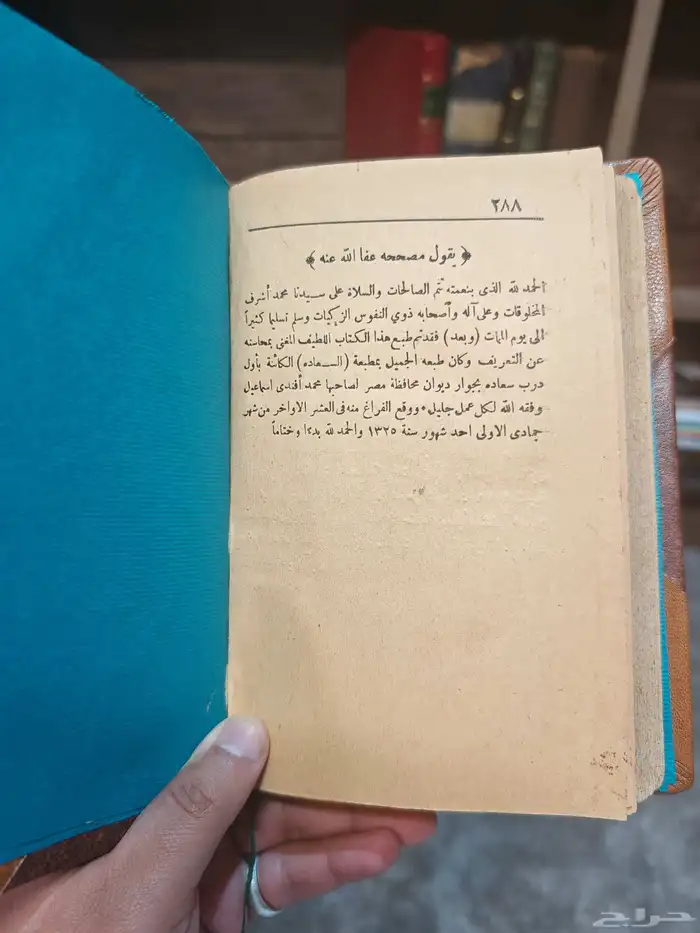 ٢٨٨
﴿ يقول مصححه عفا الله عنه ﴾
الحمد لله الذى بنعمته تتم الصالحات والسلاة على سيدنا محمد أشرف
المخلوقات وعلى آله وأصحابه ذوي النفوس الزكيات وسلم تسليما كثيراً
الى يوم الممات (وبعد) فقد تم طبع هذا الكتاب اللطيف المغنى بمحاسنه
عن التعريف وكان طبعه الجميل بمطبعة (السعاده) الكائنة بأول
درب سعاده بجوار ديوان محافظة مصر لصاحبها محمد أفندى اسماعيل
وفقه الله لكل عمل جليل * ووقع الفراغ منه فى العشر الاواخر من شهر
جمادى الاولى احد شهور سنة ١٣٢٥ والحمد لله بدءا وختاماً
حراج